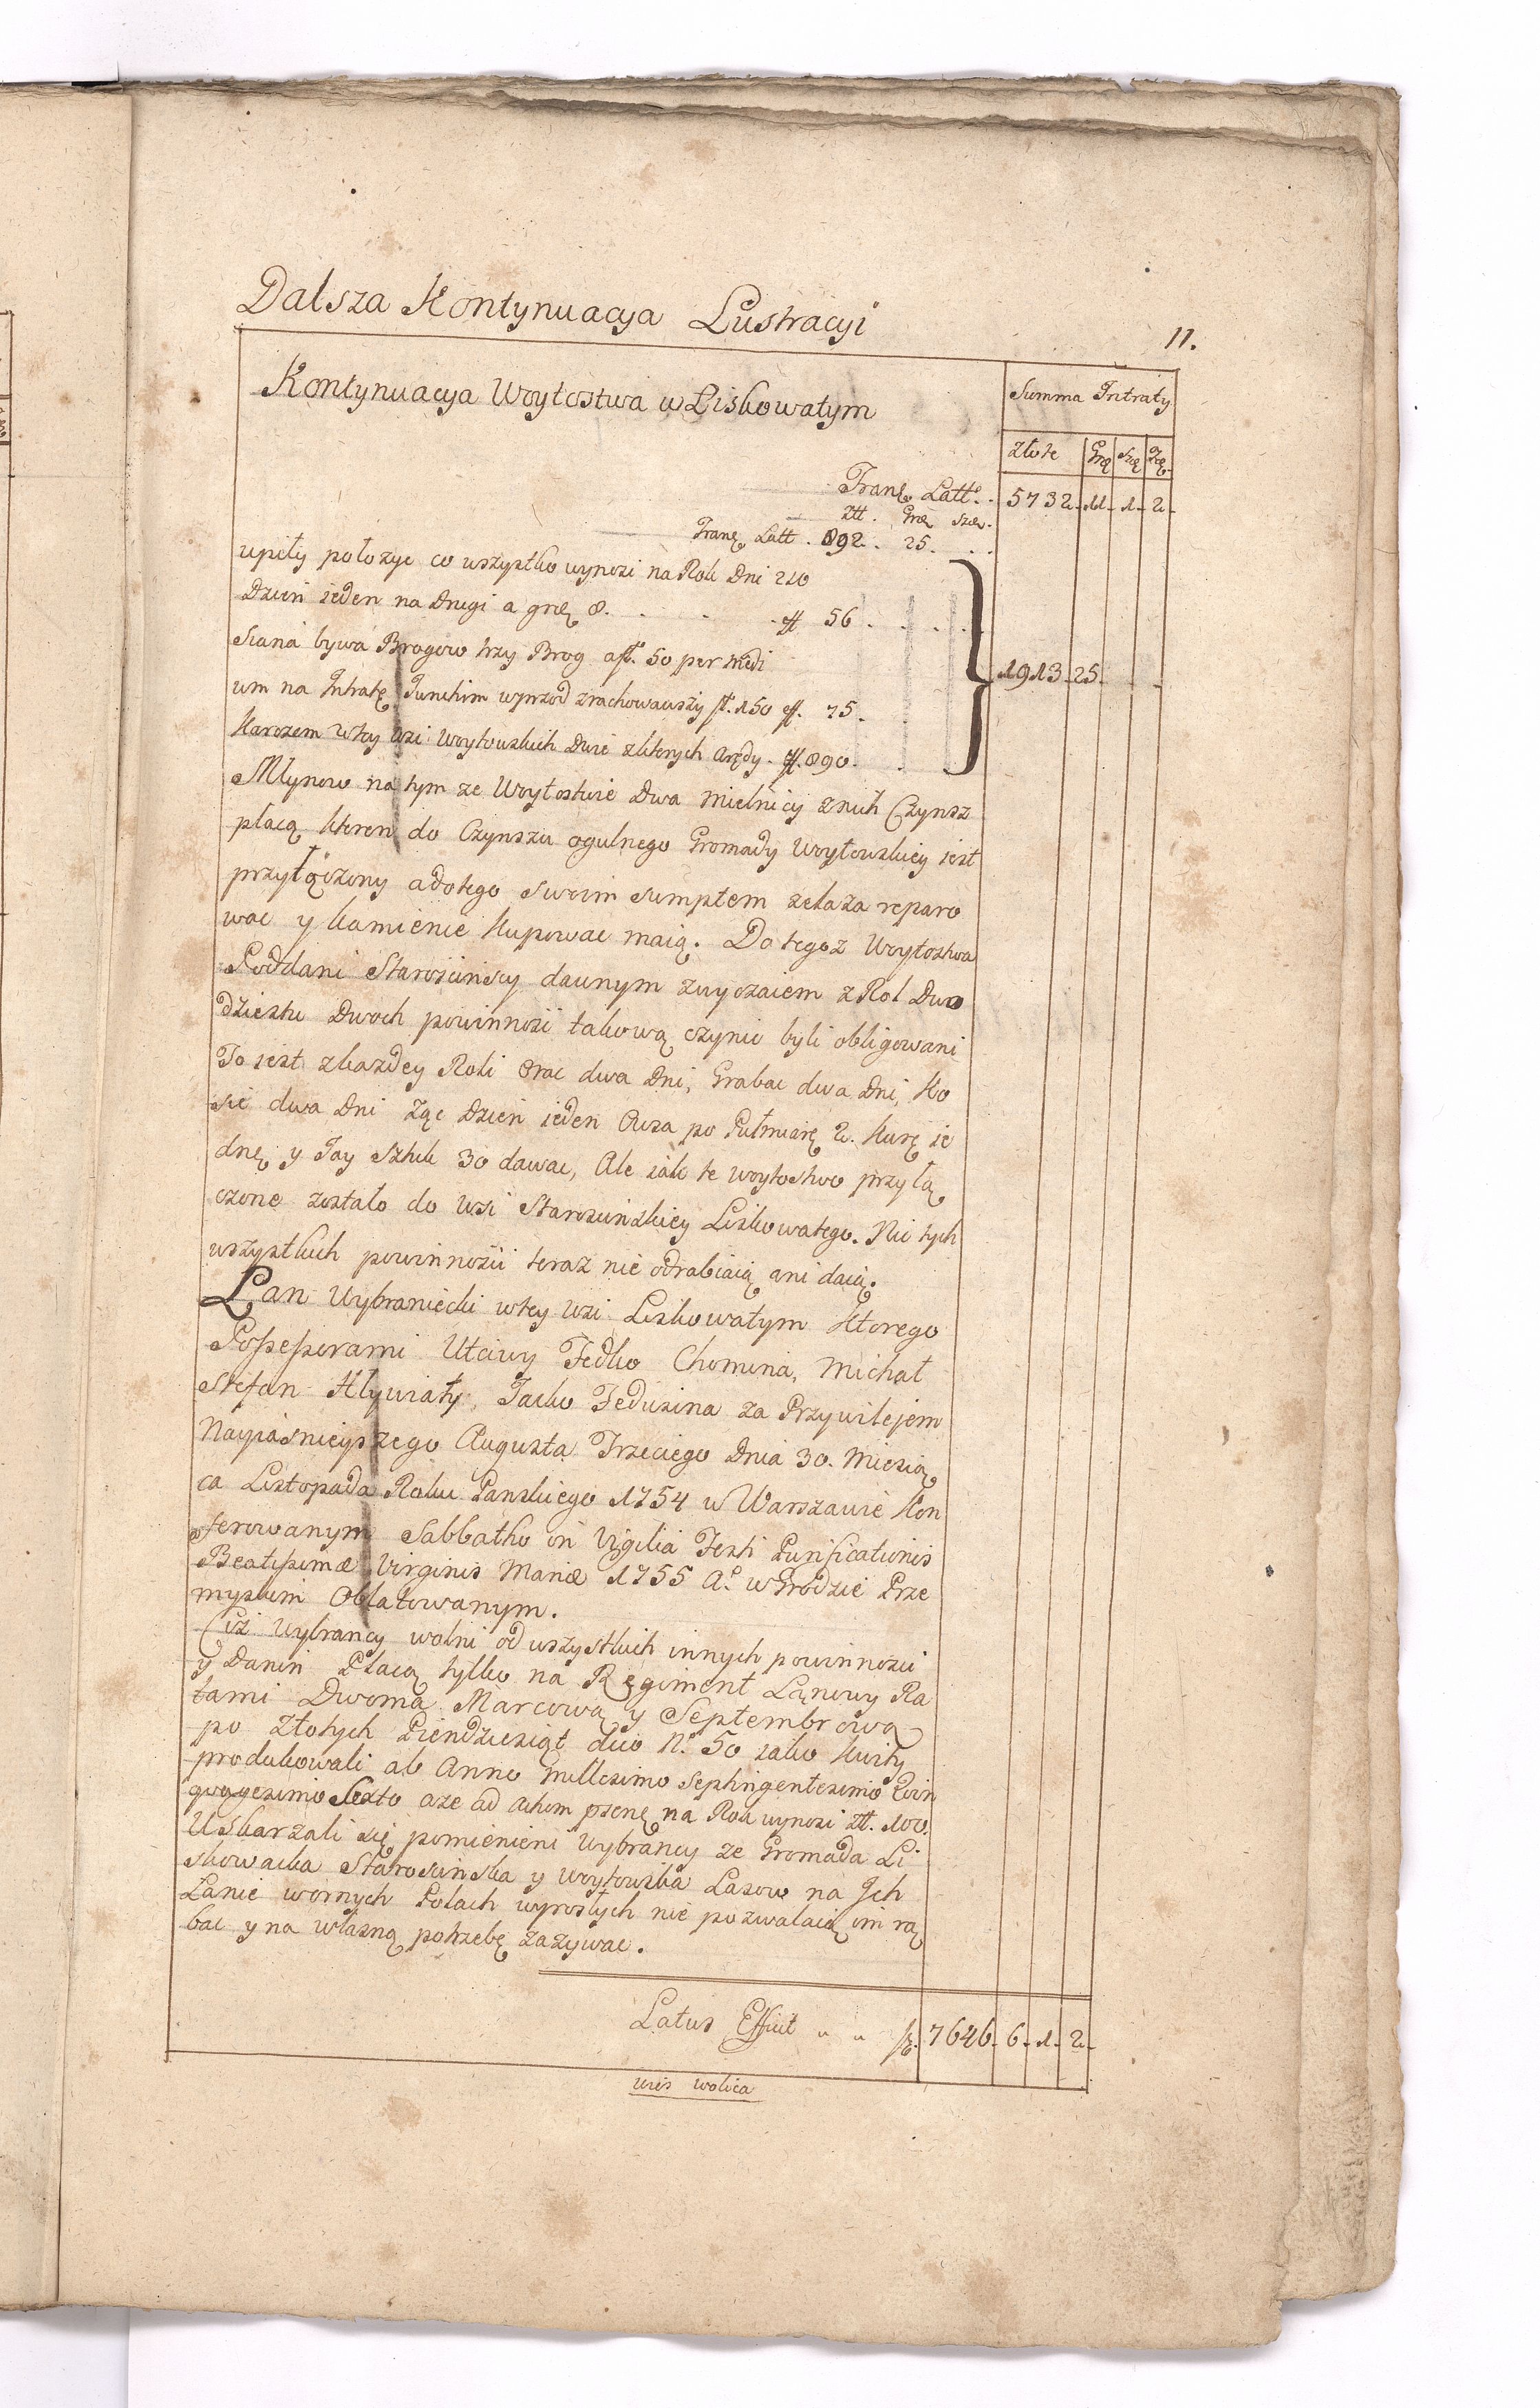 Dalsza Kontynuacya Lustracyi
11.
Kontynuacya Woytostwa w Liskowatym
Summa Intraty
Złote Grę Szę
Transę Latt. 5732. 11. 1. 2.
Ztt. Grę Szę.
Transę Latt. 892. 25.
upiły położyc co wszystko wynosi na Rok Dni 210
Dzien ieden na Drugi a grę 8. ff 56.
Siana bywa Brogow trzy Brog a fl. 50 per medi
um na Intratę Junctim wprzod zrachowawszy fl. 150 ff. 75.
1913. 25.
Karczem w tey Wsi Woytowskich Dwie z ktorych Arędy. ff. 890.
Młynow na tym ze Woytostwie Dwa Mielnicy z nich Czynsz
płacą kteren do Czynszu ogulnego Gromady Woytowskiey iest
przyłączony a do tego swoim sumptem zelaza reparo
wac y kamienie kupowac maią. Do tegoz Woytostwa
Poddani Starościnscy dawnym zwyczaiem z Rol Dwo
dziestu Dwoch powinnosi takową czynic byli obligowani
To iest z kazdey Roli Orac dwa Dni, Grabac dwa Dni, Ko
sic dwa Dni Ząc Dzień ieden Owsa po Pułmiarę 2. Kurę ie
dnę y Jay Sztuk 30 dawac, Ale iak te woytostwo przyłą
czone zostało do Wsi Starosciński​ey Liskowatego. Nic tych
wszystkich powinnosii teraz nie odrabiaią ani daią.
Łan Wybraniecki w tey Wsi Liskowatym ktorego
Possessorami Utciwy Fedko Chomina, Michał
Stefan Hlywiaty, Jacko Fedusina za Przywilejem
Nayjasnieyszego Augusta Trzeciego Dnia 30. Miesią
ca Listopada Roku Panskiego 1754 w Warszawie Kon
ferowanym Sabbatho in Vigilia Festi Purificationis
Beatissimæ Virginis Mariæ 1755 Ao. w Grodzie Prze
myskim Oblatowanym.
Ciż Wybrancy wolni od wszystkich innych powinnosci
y Danin Płacą tylko na Regiment Łanowy Ra
tami Dwoma Marcową y Septembrową
po Złotych Piendziesiąt duo No. 50 iako kwity
produkowali ab Anno Millesimo Septingentesimo Quin
quagesimo Sexto aze ad Actum psenę na Rok wynosi Ztt. 100.
Uskarzali się pomienieni Wybrancy ze Gromada Li
skowacka Starościnska y Woytowska Lasow na Ich
Łanie w ornych Polach wyrosłych nie pozwalaią im rą
bac y na własną potrzebę zazywac.
Latus Efficit " " fl. 7646. 6. 1. 2.